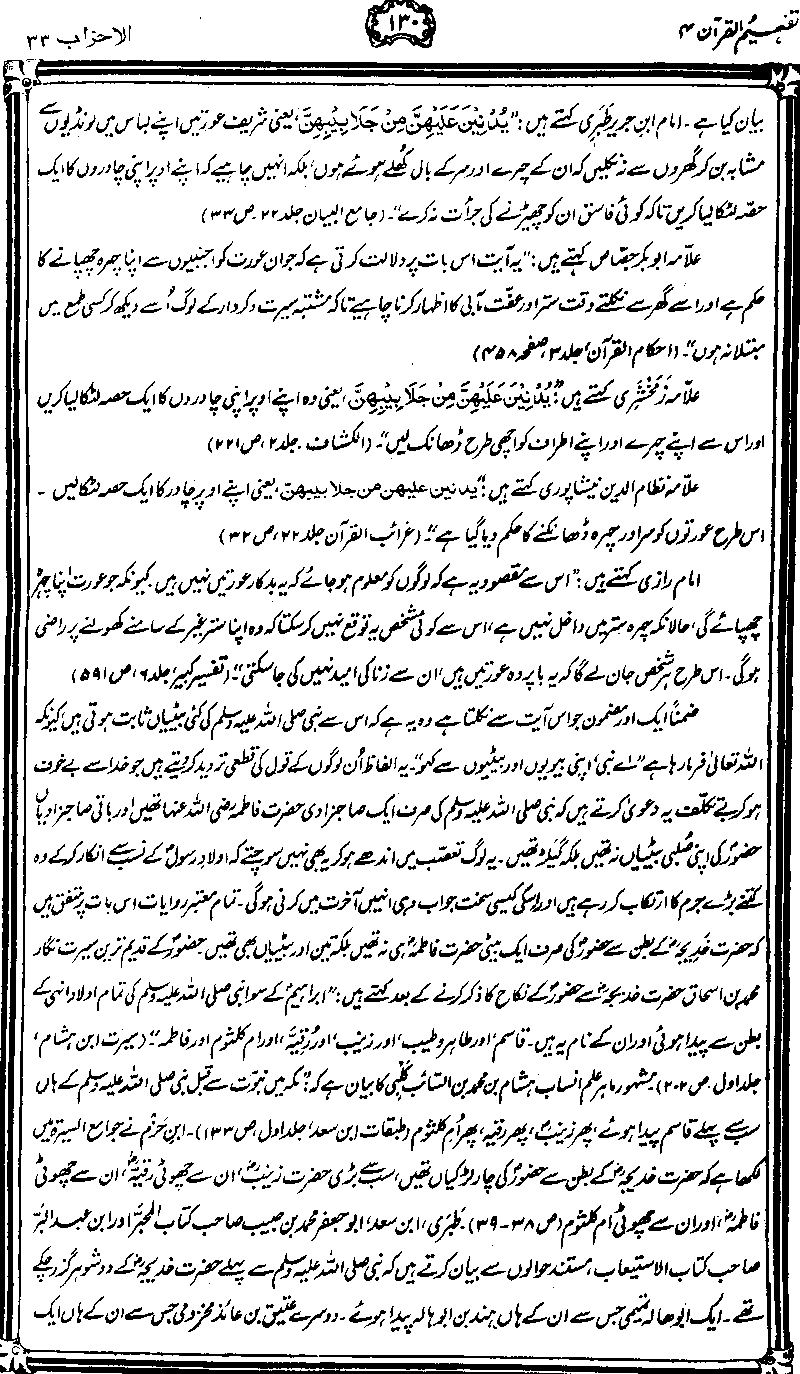 تفہیم القرآن ۴
۱۳۰
الاحزاب ۳۳
بیان کیا ہے۔ امام ابن جریر طَبَری کہتے ہیں: ”یُدْنِیْنَ عَلَیْھِنَّ مِنْ جَلَا بِیْبِھِنَّ، یعنی شریف عورتیں اپنے لباس میں لونڈیوں سے
مشابہ بن کر گھروں سے نہ نکلیں کہ ان کے چہرے اور سر کے بال کُھلے ہوئے ہوں، بلکہ انہیں چاہیے کہ اپنے اوپر اپنی چادروں کا ایک
حصّہ لٹکا لیا کریں تاکہ کوئی فاسق ان کو چھیڑنے کی جرأت نہ کرے“۔ (جامع البیان جلد ۲۲۔ ص ۳۳)
علّامہ ابوبکر جصّاص کہتے ہیں: ”یہ آیت اس بات پر دلالت کرتی ہے کہ جوان عورت کو اجنبیوں سے اپنا چہرہ چھپانے کا
حکم ہے اور اسے گھر سے نکلتے وقت ستر اور عفّت مآبی کا اظہار کرنا چاہیے تاکہ مشتبہ سیرت و کردار کے لوگ اُسے دیکھ کر کسی طمع میں
مبتلا نہ ہوں“۔ (احکام القرآن، جلد ۳، صفحہ ۴۵۸)
علّامہ زَمَخْشَری کہتے ہیں: ”یُدْنِیْنَ عَلَیْھِنَّ مِنْ جَلَا بِیْبِھِنَّ، یعنی وہ اپنے اوپر اپنی چادروں کا ایک حصہ لٹکا لیا کریں
اور اس سے اپنے چہرے اور اپنے اطراف کو اچھی طرح ڈھانک لیں“۔ (الکشاف۔ جلد ۲، ص ۲۲۱)
علّامہ نظام الدین نیشاپوری کہتے ہیں: ”یدنین علیھن من جلا بیبھن، یعنی اپنے اوپر چادر کا ایک حصہ لٹکالیں۔
اس طرح عورتوں کو سر اور چہرہ ڈھانکنے کا حکم دیا گیا ہے“۔ (غرائب القرآن جلد ۲۲، ص ۳۲)
امام رازی کہتے ہیں: ”اس سے مقصود یہ ہے کہ لوگوں کو معلوم ہو جائے کہ یہ بدکار عورتیں نہیں ہیں۔ کیونکہ جو عورت اپنا چہرہ
چھپائے گی، حالانکہ چہرہ ستر میں داخل نہیں ہے، اس سے کوئی شخص یہ توقع نہیں کر سکتا کہ وہ اپنا ستر غیر کے سامنے کھولنے پر راضی
ہوگی۔ اس طرح ہر شخص جان لے گا کہ یہ باپردہ عورتیں ہیں، ان سے زنا کی امید نہیں کی جا سکتی“۔ (تفسیر کبیر، جلد ۶، ص ۵۹۱)
ضمناً ایک اور مضمون جو اس آیت سے نکلتا ہے وہ یہ ہے کہ اس سے نبی صلی اللہ علیہ وسلم کی کئی بیٹیاں ثابت ہوتی ہیں، کیونکہ
اللہ تعالیٰ فرما رہا ہے ”اے نبی، اپنی بیویوں اور بیٹیوں سے کہو“۔ یہ الفاظ اُن لوگوں کے قول کی قطعی تردید کر دیتے ہیں جو خدا سے بے خوف
ہو کر بے تکلّف یہ دعویٰ کرتے ہیں کہ نبی صلی اللہ علیہ وسلم کی صرف ایک صاحبزادی حضرت فاطمہ رضی اللہ عنہا تھیں اور باقی صاحبزادیاں
حضورؐ کی اپنی صُلبی بیٹیاں نہ تھیں بلکہ گَیلڑ تھیں۔ یہ لوگ تعصّب میں اندھے ہو کر یہ بھی نہیں سوچتے کہ اولادِ رسولؐ کے نسب سے انکار کر کے وہ
کتنے بڑے جرم کا ارتکاب کر رہے ہیں اور اس کی کیسی سخت جواب دہی انہیں آخرت میں کرنی ہوگی۔ تمام معتبر روایات اس بات پر متفق ہیں
کہ حضرت خَدِیجہؓ کے بطن سے حضورؐ کی صرف ایک بیٹی حضرت فاطمہؓ ہی نہ تھیں بلکہ تین اور بیٹیاں بھی تھیں۔ حضورؐ کے قدیم ترین سیرت نگار
محمد بن اسحاق حضرت خدیجہؓ سے حضورؐ کے نکاح کا ذکر کرنے کے بعد کہتے ہیں: ”ابراہیمؓ کے سوا نبی صلی اللہ علیہ وسلم کی تمام اولاد انہی کے
بطن سے پیدا ہوئی اور ان کے نام یہ ہیں۔ قاسم، اور طاہر و طیب، اور زینب، اور رُقیّہ، اور ام کلثوم اور فاطمہ“۔ (سیرت ابن ہشام،
جلد اول۔ ص ۲۰۲) مشہور ماہر علم انساب ہشام بن محمد بن السّائب کَلْبی کا بیان ہے کہ: ”مکّہ میں نبوّت سے قبل نبی صلی اللہ علیہ وسلم کے ہاں
سب سے پہلے قاسم پیدا ہوئے، پھر زینبؓ، پھر رقیہ، پھر اُم کلثوم (طبقات ابن سعد، جلد اول، ص ۱۳۳)۔ ابن حَزْم نے جوامع السیرۃ میں
لکھا ہے کہ حضرت خدیجہؓ کے بطن سے حضورؐ کی چار لڑکیاں تھیں، سب سے بڑی حضرت زینبؓ، ان سے چھوٹی رقیہؓ، ان سے چھوٹی
فاطمہؓ، اور ان سے چھوٹی اُم کلثومؓ (ص ۳۸-۳۹)۔ طَبَری، ابن سعد، ابو جعفر محمد بن حبیب صاحب کتاب المُحبَّر اور ابن عبد البَرّ
صاحب کتاب الاستیعاب، مستند حوالوں سے بیان کرتے ہیں کہ نبی صلی اللہ علیہ وسلم سے پہلے حضرت خدیجہؓ کے دو شوہر گزر چکے
تھے۔ ایک ابو ھالہ تمیمی جس سے ان کے ہاں ہند بن ابو ہالہ پیدا ہوئے۔ دوسرے عتیق بن عائذ مخزومی جس سے ان کے ہاں ایک